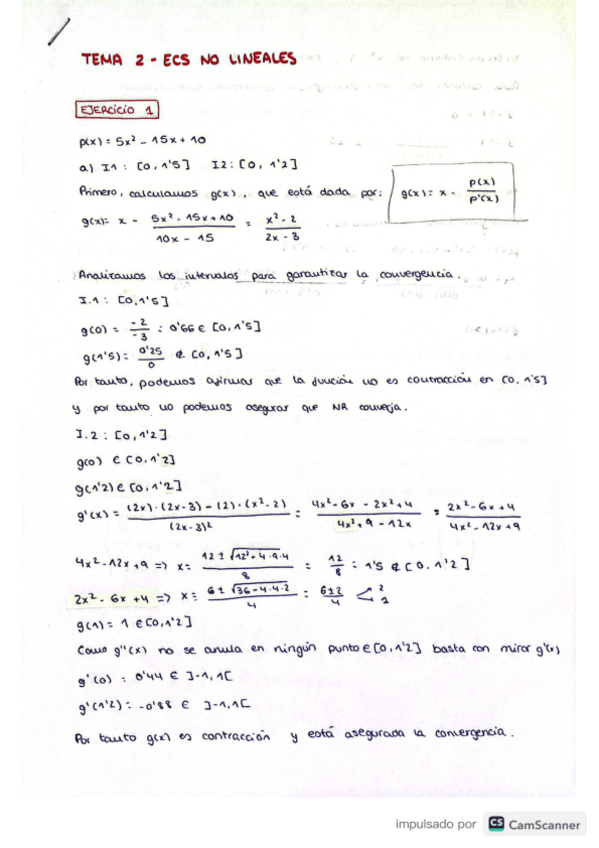 TEMA 2 - ECS NO LINEALES
EJERCICIO 1
p(x) = 5x² - 15x + 10
a) I1 : [0, 1'5] I2 : [0, 1'2]
Primero, calculamos g(x), que está dada por: g(x) = x - p(x)/p'(x)
g(x) = x - (5x² - 15x + 10)/(10x - 15) = (x² - 2)/(2x - 3)
Analizamos los intervalos para garantizar la convergencia.
I.1 : [0, 1'5]
g(0) = -2/-3 = 0'66 ∈ [0, 1'5]
g(1'5) = 0'25/0 ∉ [0, 1'5]
Por tanto, podemos afirmar que la función no es contracción en [0, 1'5]
y por tanto no podemos asegurar que NR converja.
I.2 : [0, 1'2]
g(0) ∈ [0, 1'2]
g(1'2) ∈ [0, 1'2]
g'(x) = ((2x)·(2x-3) - (2)·(x²-2))/(2x-3)² = (4x² - 6x - 2x² + 4)/(4x² + 9 - 12x) = (2x² - 6x + 4)/(4x² - 12x + 9)
4x² - 12x + 9 => x = (12 ± √(12² - 4·9·4))/8 = 12/8 = 1'5 ∉ [0, 1'2]
2x² - 6x + 4 => x = (6 ± √(36 - 4·4·2))/4 = (6 ± 2)/4 < 2 1
g(1) = 1 ∈ [0, 1'2]
Como g''(x) no se anula en ningún punto ∈ [0, 1'2] basta con mirar g'(x)
g'(0) = 0'44 ∈ ]-1, 1[
g'(1'2) = -0'88 ∈ ]-1, 1[
Por tanto g(x) es contracción y está asegurada la convergencia.
impulsado por CS CamScanner